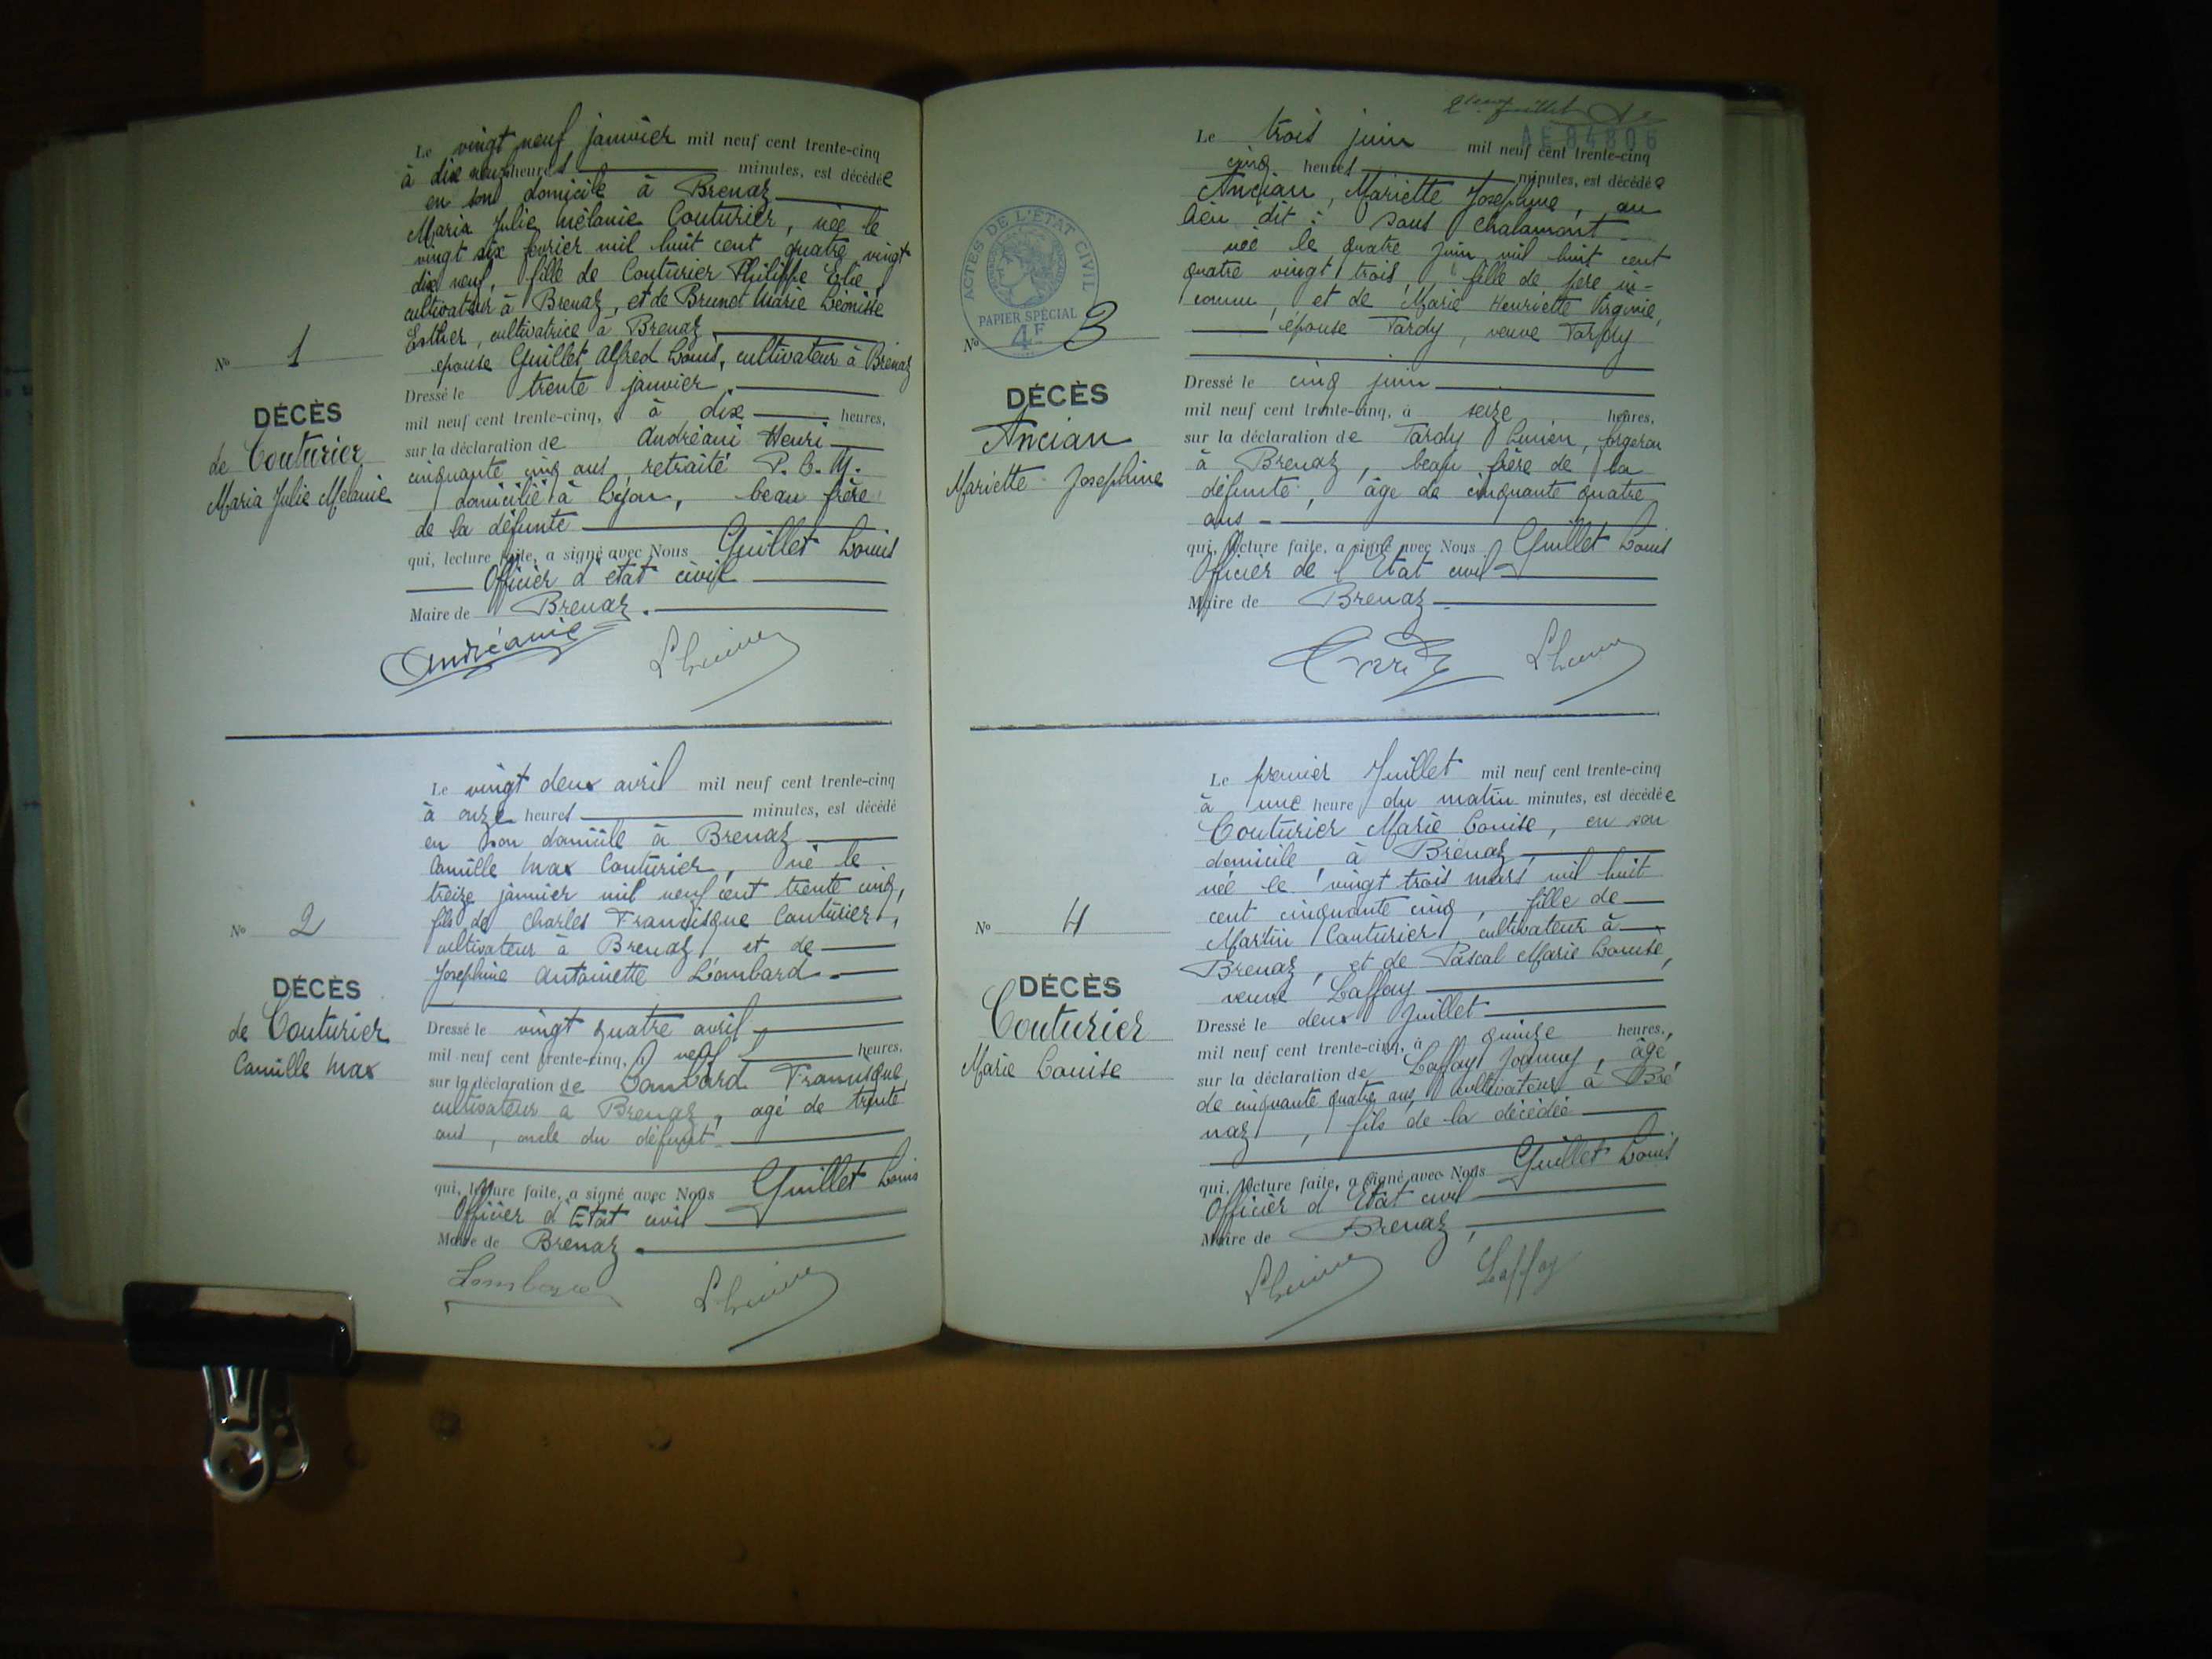 Le vingt neuf janvier mil neuf cent trente-cinq
à dix neuf heures minutes, est décédée
en son domicile à Brenaz
Maria Julie Mélanie Couturier, née le
vingt six fevrier mil huit cent quatre vingt
dix neuf, fille de Couturier Philippe Elie,
cultivateur à Brenaz, et de Brunet Marie Léonisse
Esther, cultivatrice à Brenaz
épouse Guillet Alfred Louis, cultivateur à Brenaz
Dressé le trente janvier
mil neuf cent trente-cinq, à dix heures,
sur la déclaration de Andréani Henri
cinquante cinq ans, retraité P. L. M.
domicilié à Lyon, beau frère
de la défunte
qui, lecture faite, a signé avec Nous Guillet Louis
Officier d'état civil
Maire de Brenaz.
Nº 1
DÉCÈS
de Couturier
Maria Julie Mélanie
Le vingt deux avril mil neuf cent trente-cinq
à onze heures minutes, est décédé
en son domicile à Brenaz
Camille Max Couturier, né le
treize janvier mil neuf cent trente cinq,
fils de Charles Francisque Couturier,
cultivateur à Brenaz et de
Josephine Antoinette Lombard
Dressé le vingt quatre avril
mil neuf cent trente-cinq, à neuf heures,
sur la déclaration de Lombard Francisque
cultivateur à Brenaz, agé de trente
ans, oncle du défunt
qui, lecture faite, a signé avec Nous Guillet Louis
Officier d'Etat civil
Maire de Brenaz
Lombard
Nº 2
DÉCÈS
de Couturier
Camille Max
AE 84806
Le trois juin mil neuf cent trente-cinq
cinq heures minutes, est décédée
Ancian, Mariette Josephine, au
lieu dit : sous Chalamont
née le quatre juin mil huit cent
quatre vingt trois, fille de père in-
connu, et de Marie Henriette Virginie,
épouse Tardy, veuve Tardy
Dressé le cinq juin
mil neuf cent trente-cinq, à seize heures,
sur la déclaration de Tardy Lucien, forgeron
à Brenaz, beau frère de la
défunte, âge de cinquante quatre
ans
qui, lecture faite, a signé avec Nous Guillet Louis
Officier de l'Etat civil
Maire de Brenaz
ACTES DE L'ÉTAT CIVIL
PAPIER SPÉCIAL
4F
Nº 3
DÉCÈS
Ancian
Mariette Josephine
Le premier Juillet mil neuf cent trente-cinq
à une heure du matin minutes, est décédée
Couturier Marie Louise, en son
domicile à Brenaz
née le vingt trois mars mil huit
cent cinquante cinq, fille de
Martin Couturier, cultivateur à
Brenaz, et de Pascal Marie Louise,
veuve Laffay
Dressé le deux Juillet
mil neuf cent trente-cinq, à quinze heures,
sur la déclaration de Laffay Joanny, âgé
de cinquante quatre ans, cultivateur à Bre
naz, fils de la décédée
qui, lecture faite, a signé avec Nous Guillet Louis
Officier d'Etat civil
Maire de Brenaz,
Laffay
Nº 4
DÉCÈS
Couturier
Marie Louise